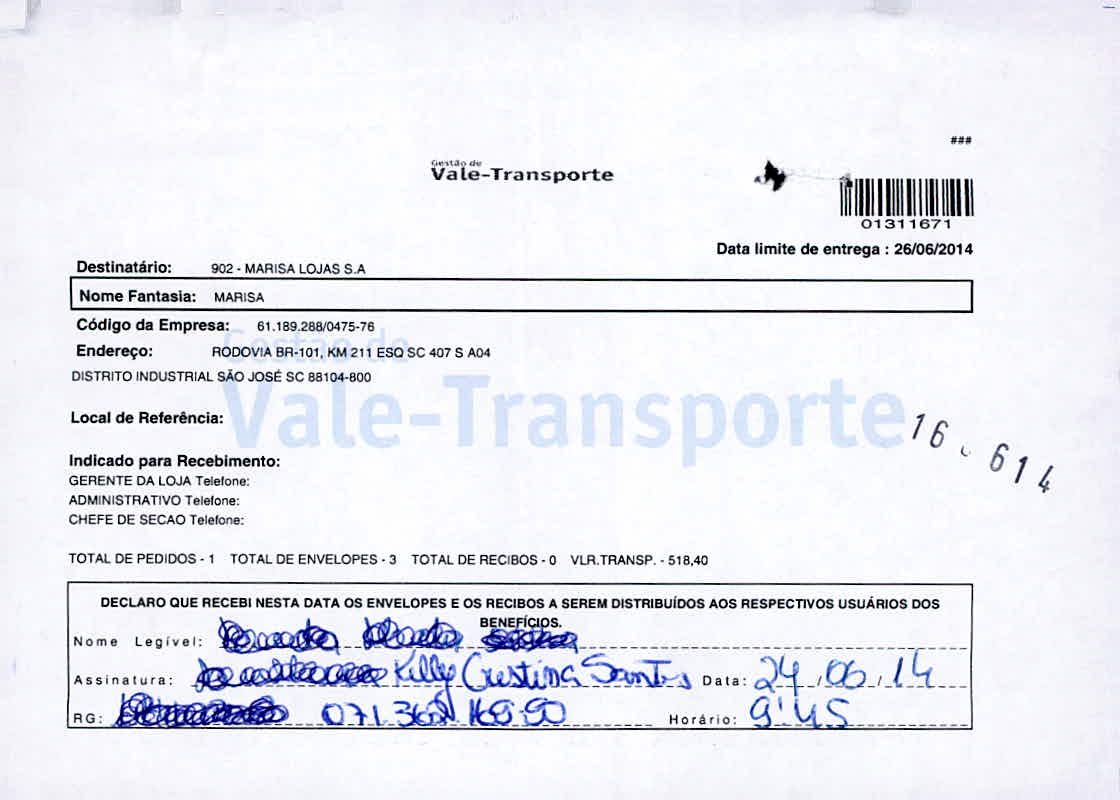 ###
Gestão de
Vale-Transporte
01311671
Data limite de entrega : 26/06/2014
Destinatário: 902 - MARISA LOJAS S.A
Nome Fantasia: MARISA
Código da Empresa: 61.189.288/0475-76
Endereço: RODOVIA BR-101, KM 211 ESQ SC 407 S A04
DISTRITO INDUSTRIAL SÃO JOSÉ SC 88104-800
Gestão de
Vale-Transporte
Local de Referência:
16 614
Indicado para Recebimento:
GERENTE DA LOJA Telefone:
ADMINISTRATIVO Telefone:
CHEFE DE SECAO Telefone:
TOTAL DE PEDIDOS - 1 TOTAL DE ENVELOPES - 3 TOTAL DE RECIBOS - 0 VLR.TRANSP. - 518,40
DECLARO QUE RECEBI NESTA DATA OS ENVELOPES E OS RECIBOS A SEREM DISTRIBUÍDOS AOS RESPECTIVOS USUÁRIOS DOS
BENEFÍCIOS.
Nome Legível:
Assinatura: Killy Cristina Santos Data: 24/06/14
RG: Horário: 9:45